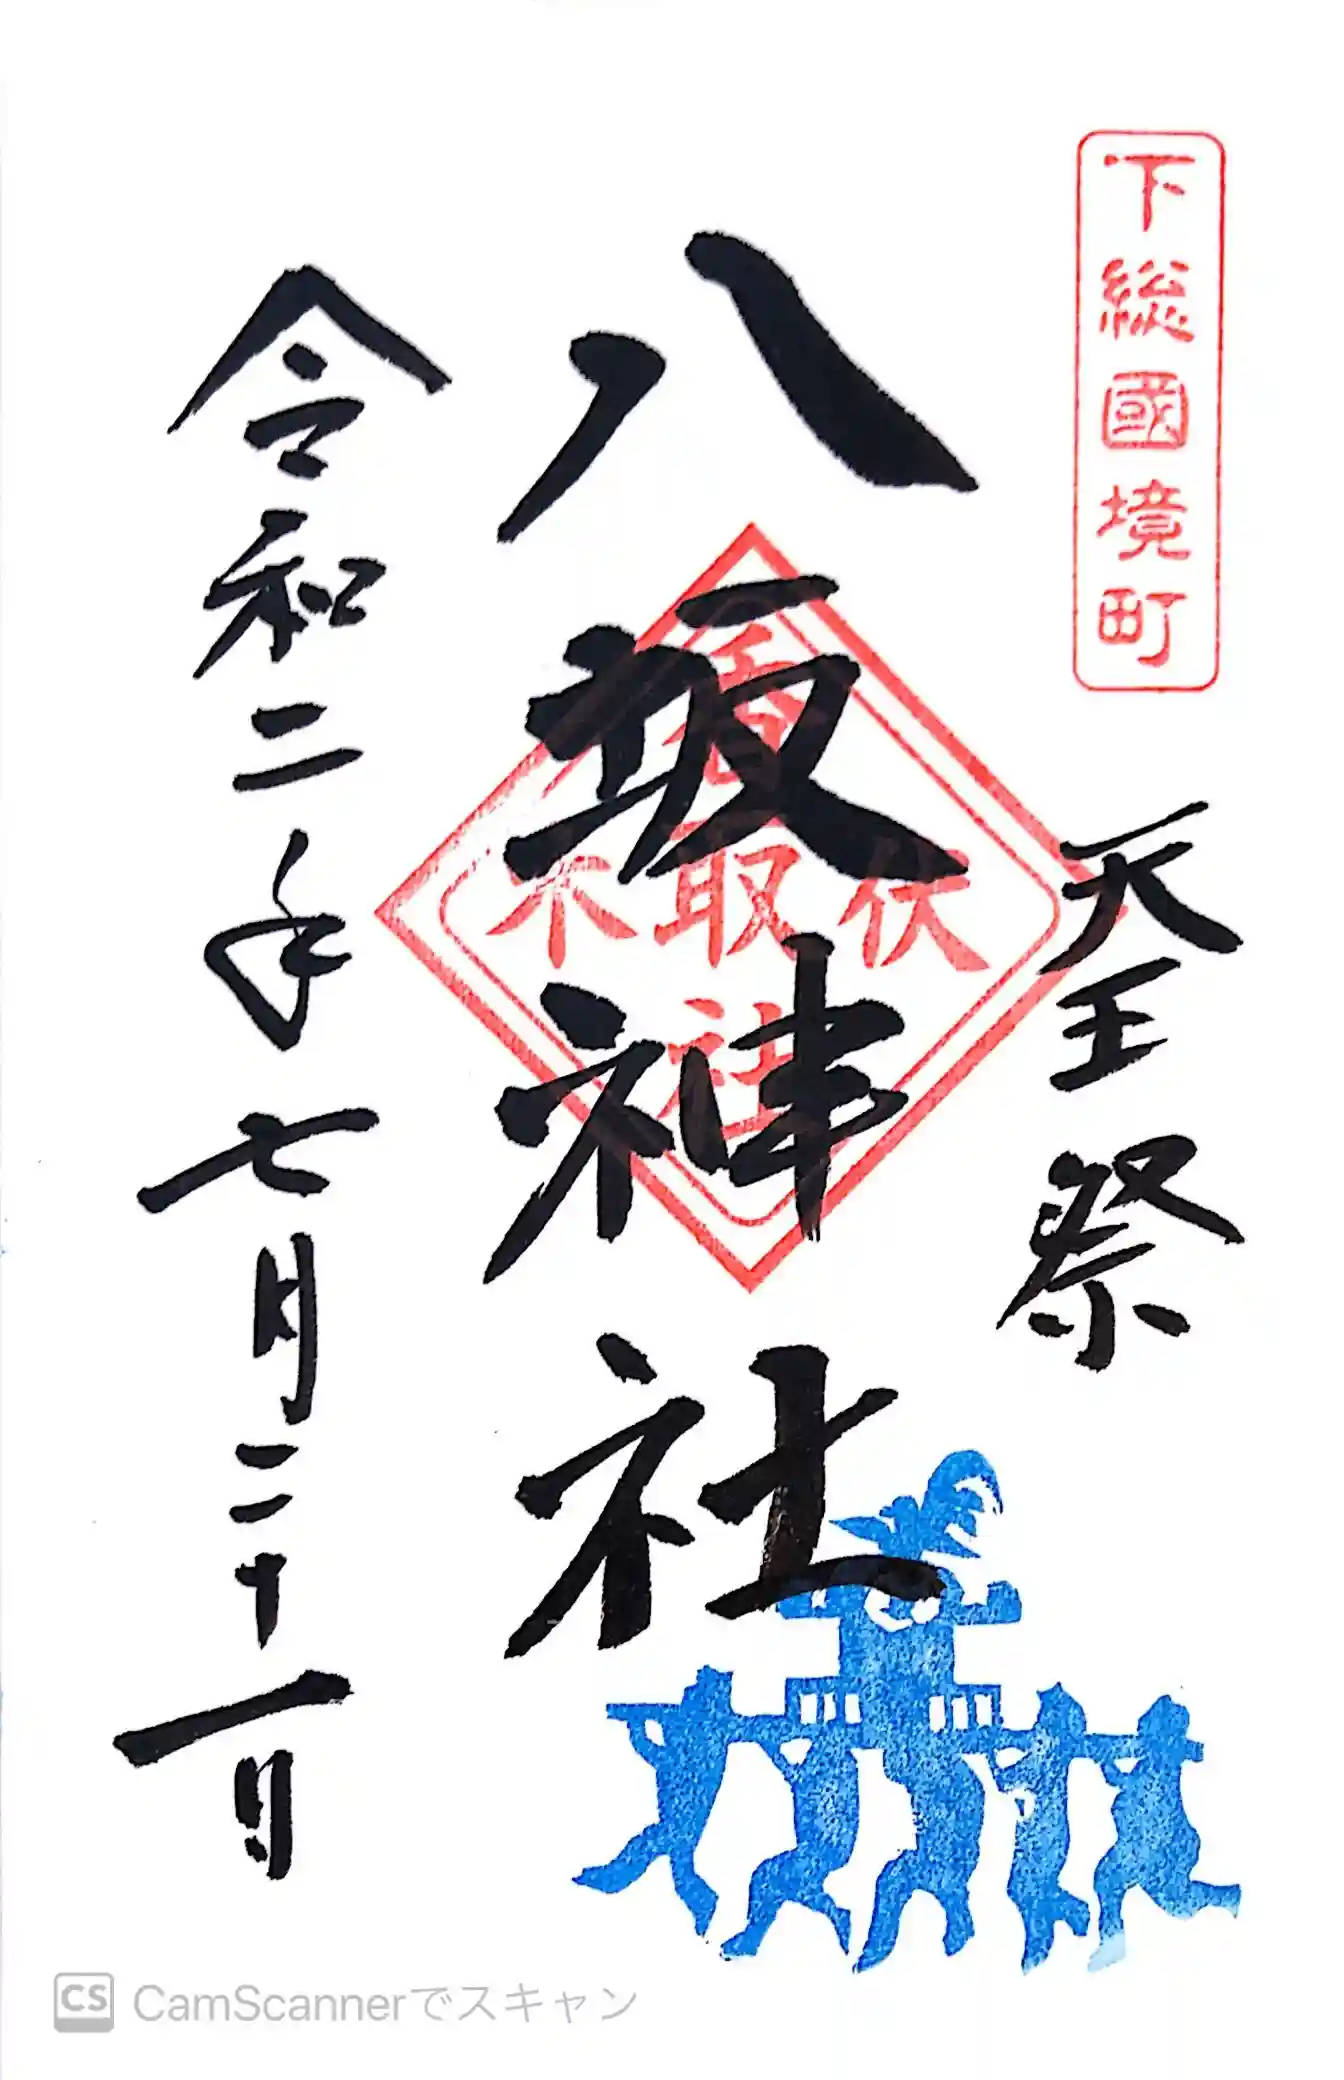 下総國境町
天王祭
八坂神社
伏
取
木
社
令和二年七月二十一日
CS CamScannerでスキャン